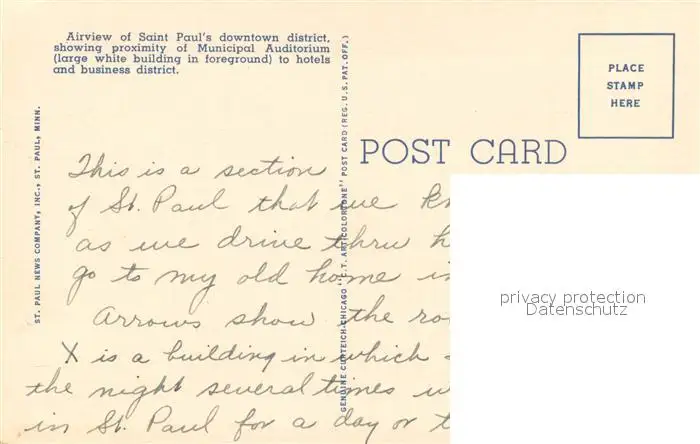 Airview of Saint Paul's downtown district,
showing proximity of Municipal Auditorium
(large white building in foreground) to hotels
and business district.
ST. PAUL NEWS COMPANY, INC., ST. PAUL, MINN.
GENUINE CURTEICH-CHICAGO "C.T. ART-COLORTONE" POST CARD (REG. U.S. PAT. OFF.)
POST CARD
PLACE
STAMP
HERE
This is a section
of St. Paul that we
as we drive thru
go to my old home in
Arrows show the
X is a building in which
the night several times
in St. Paul for a day or
privacy protection
Datenschutz